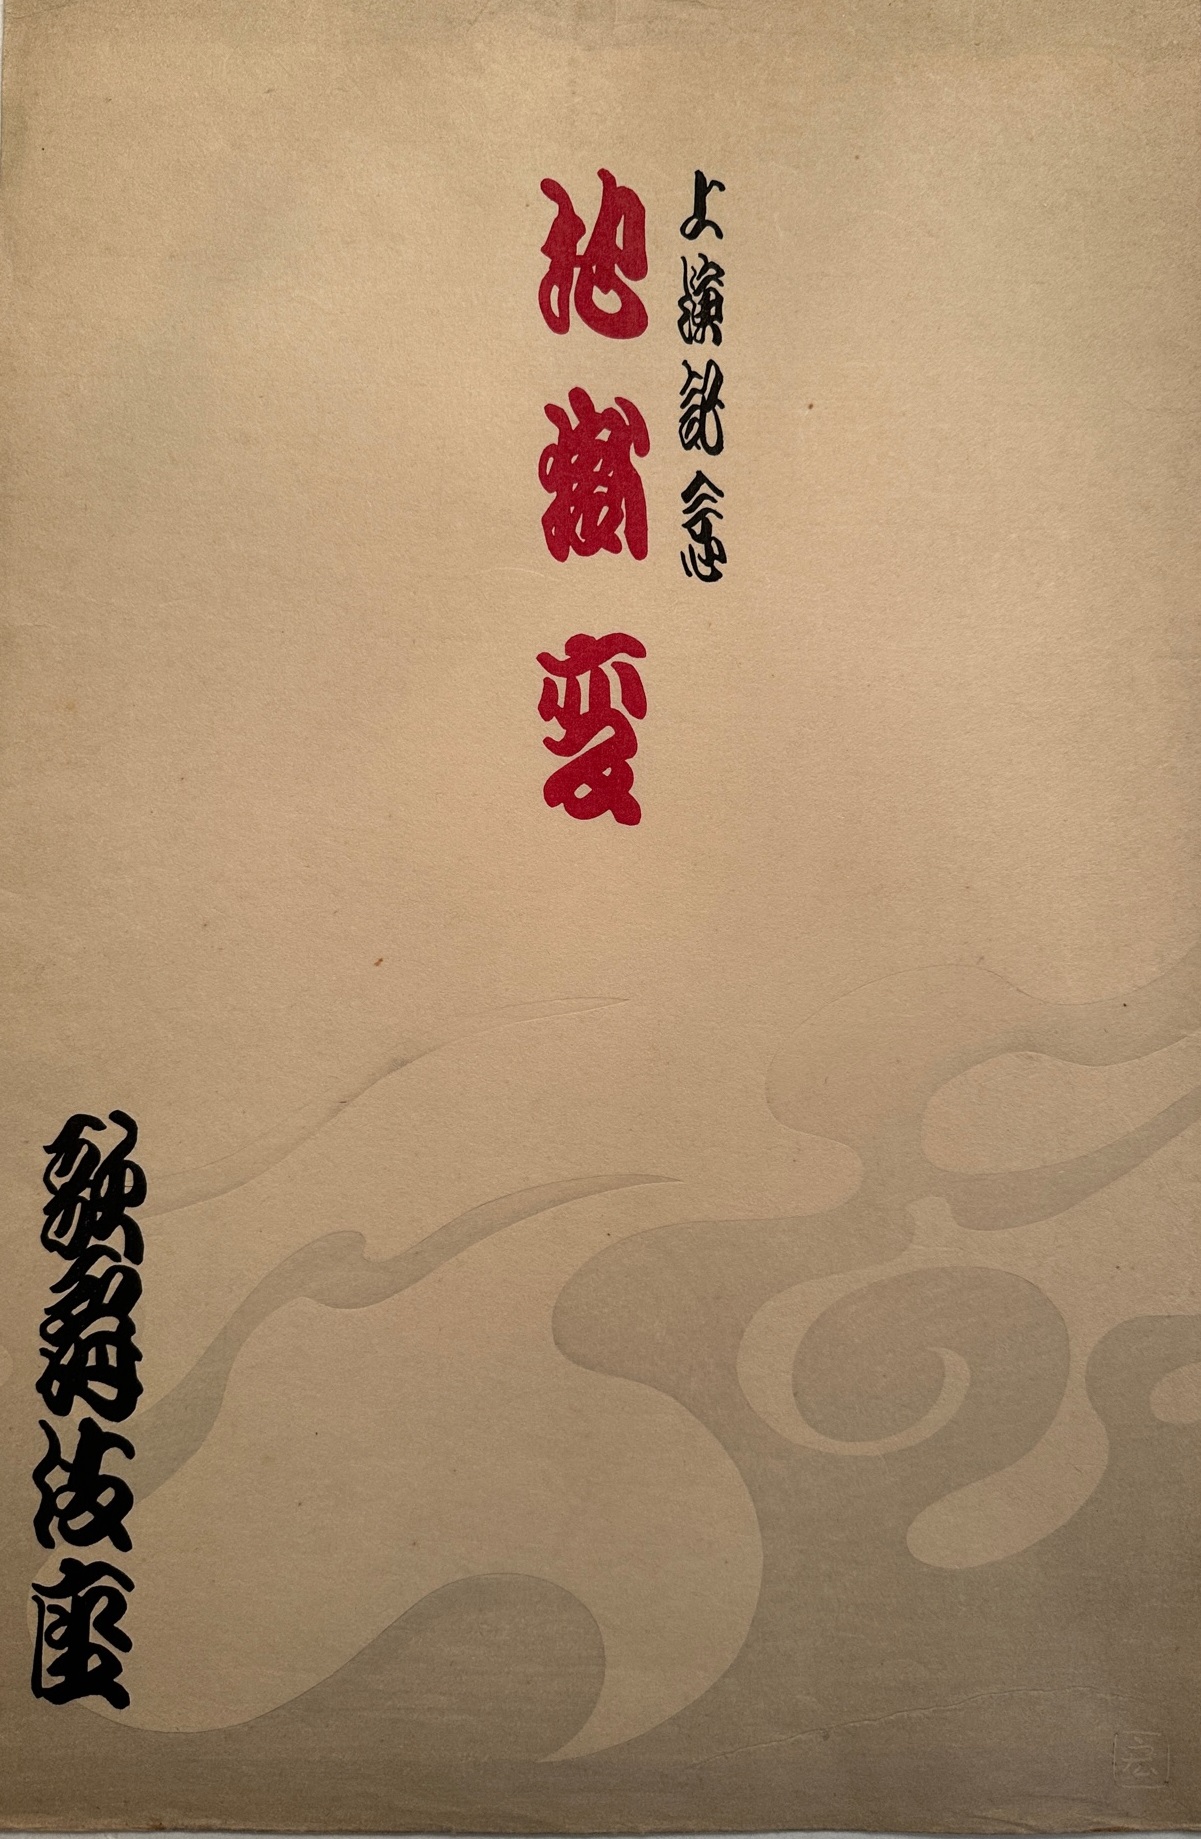 上演記念
地獄変
歌舞伎座